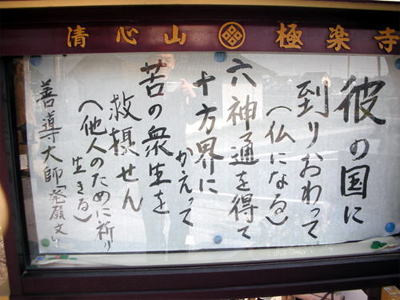 清心山 極楽寺
彼の国に
到りおわって
(仏になる)
六神通を得て
十方界に
かえって
苦の衆生を
救摂せん
(他人のために祈り
生きる)
善導大師「発願文」